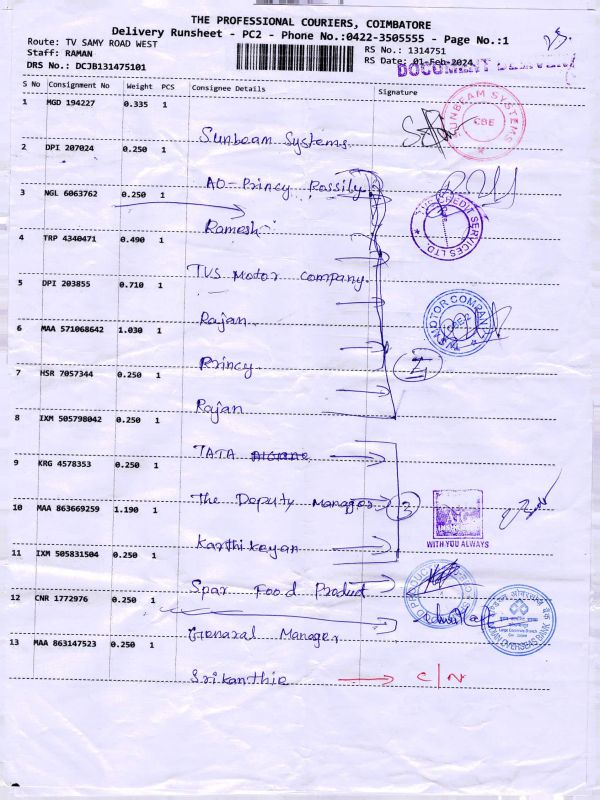 THE PROFESSIONAL COURIERS, COIMBATORE
Delivery Runsheet - PC2 - Phone No.:0422-3505555 - Page No.:1
Route: TV SAMY ROAD WEST
RS No.: 1314751
Staff: RAMAN
RS Date: 01-Feb-2024
DRS No.: DCJB131475101
DOCUMENT
S No Consignment No Weight PCS Consignee Details Signature
1 MGD 194227 0.335 1
Sunbeam Systems
SUNBEAM SYSTEMS
CBE
2 DPI 207024 0.250 1
AO-Princy Rossily
3 NGL 6063762 0.250 1
Ramesh
CREDIT SERVICES LTD.
4 TRP 4340471 0.490 1
TVS Motor Company
5 DPI 203855 0.710 1
Rajan
MOTOR COMPANY
6 MAA 571068642 1.030 1
Princy
7 HSR 7057344 0.250 1
Rajan
8 IXM 505798042 0.250 1
TATA
9 KRG 4578353 0.250 1
The Deputy Manager
3
10 MAA 863669259 1.190 1
Karthikeyan
WITH YOU ALWAYS
11 IXM 505831504 0.250 1
Spar Food Product
12 CNR 1772976 0.250 1
Genaral Manager
INDIAN OVERSEAS BANK
13 MAA 863147523 0.250 1
Srikanthie
C/N